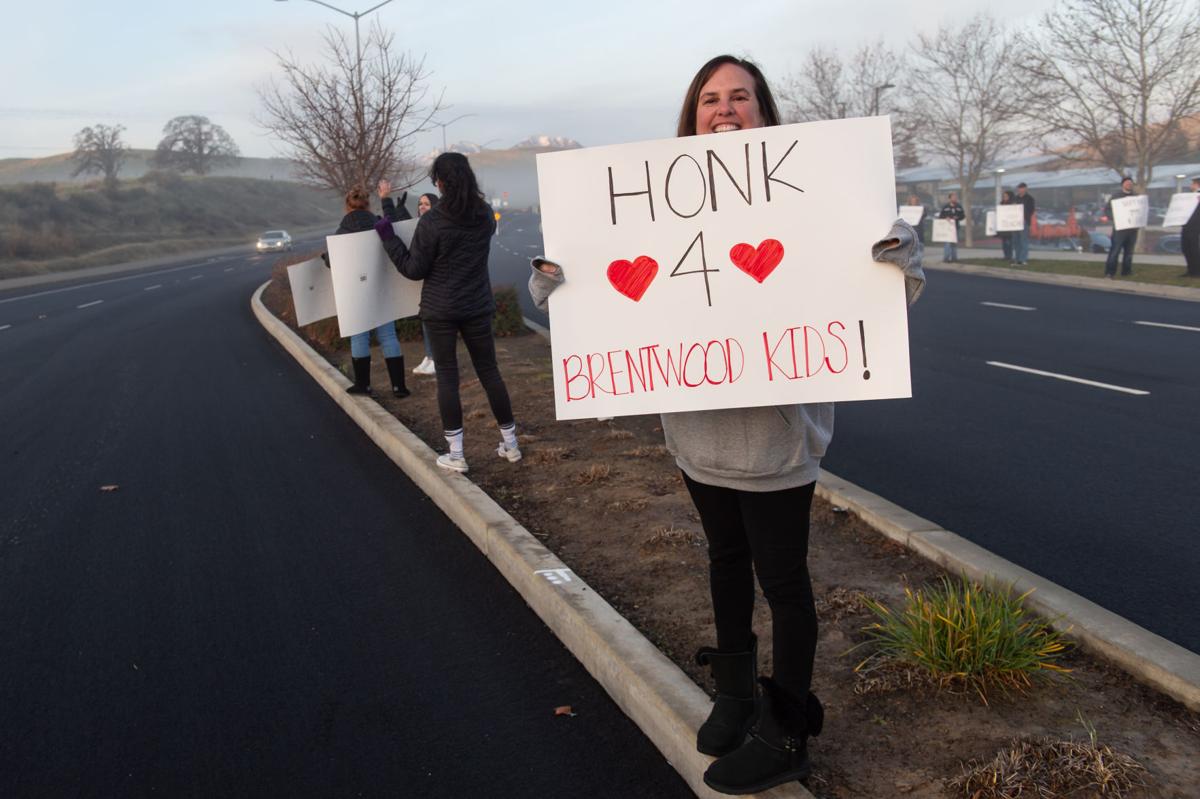 HONK
4
BRENTWOOD KIDS!